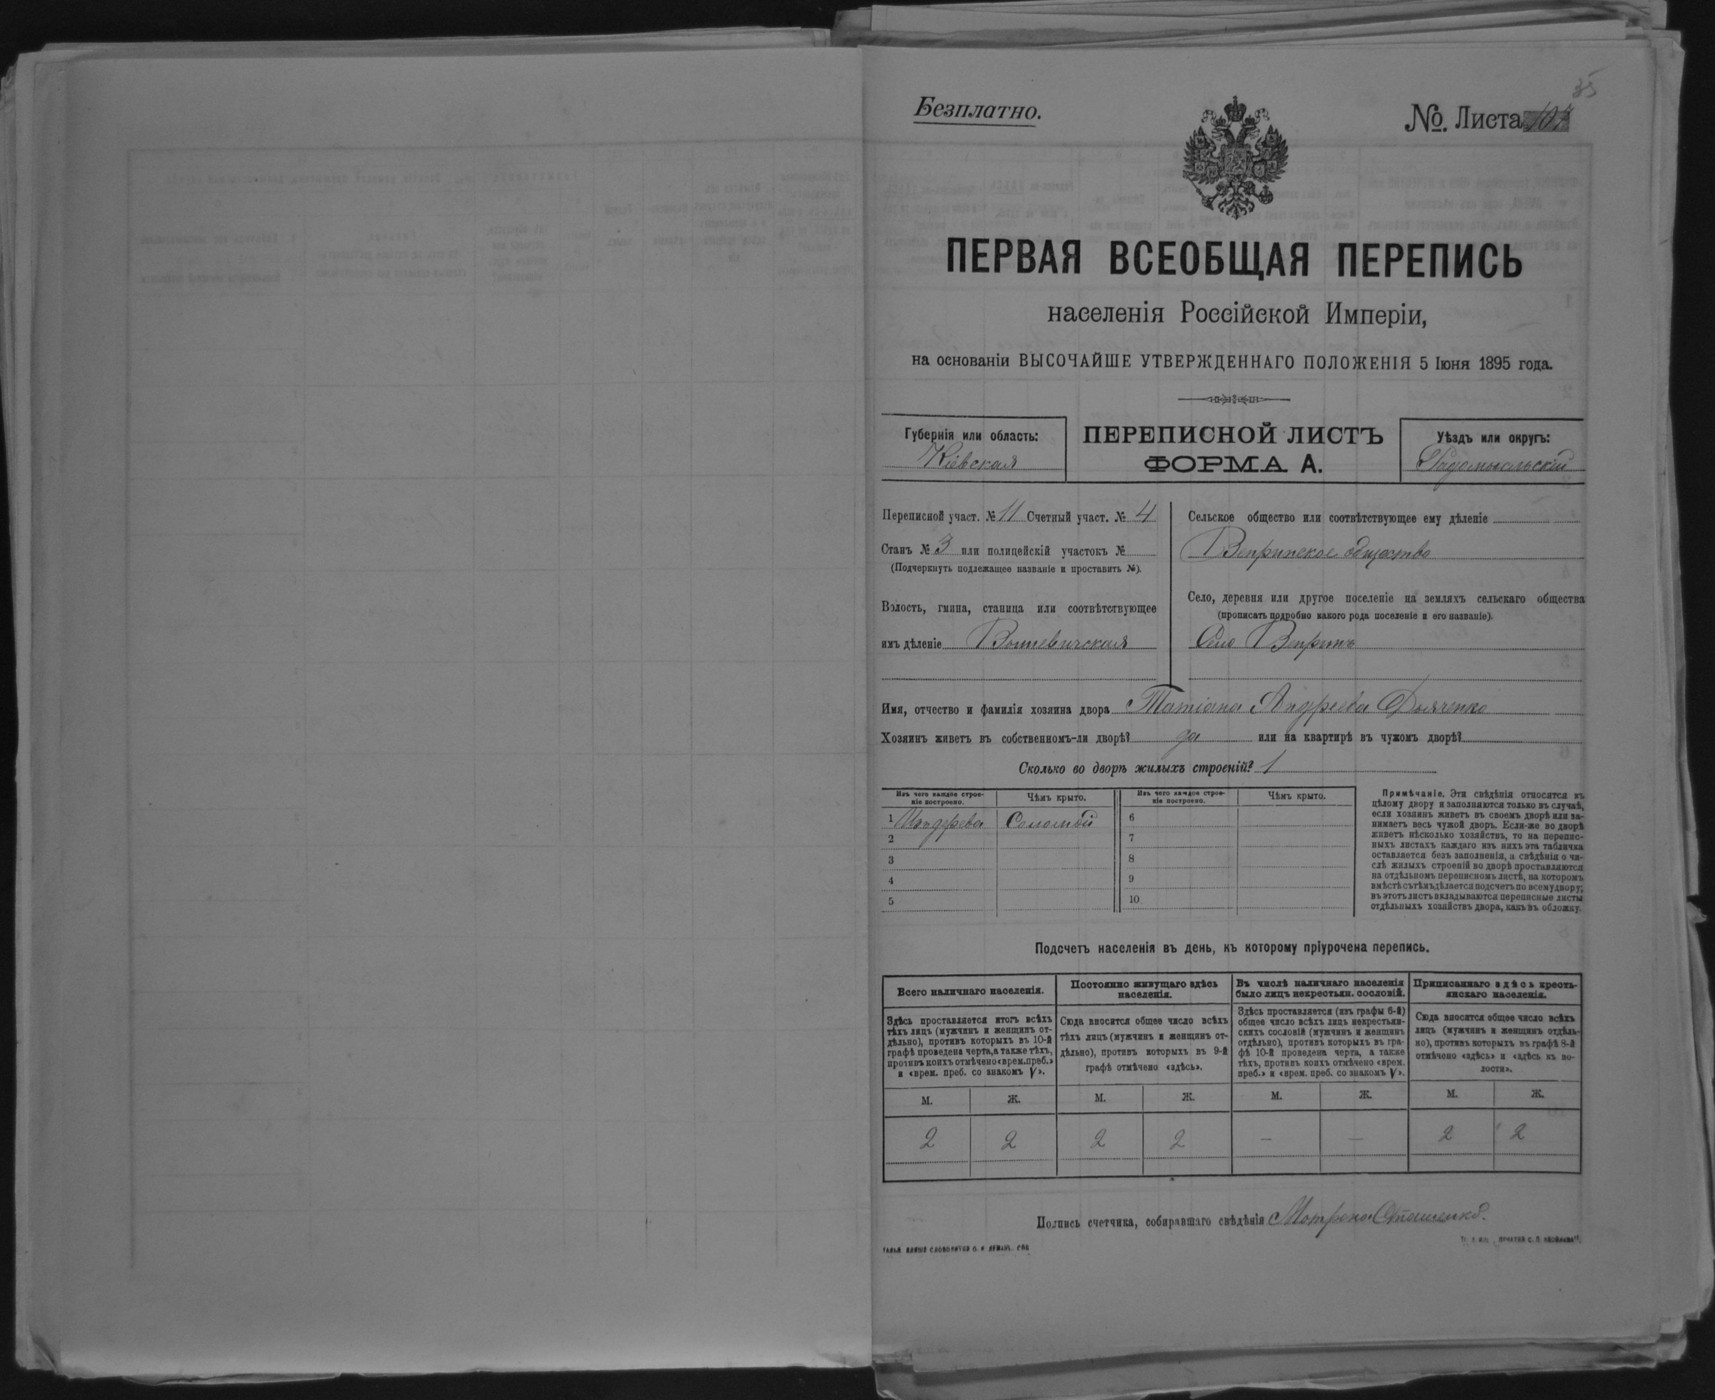 35
Безплатно.
№. Листа 104
ПЕРВАЯ ВСЕОБЩАЯ ПЕРЕПИСЬ
населенія Россійской Имперіи,
на основаніи ВЫСОЧАЙШЕ УТВЕРЖДЕННАГО ПОЛОЖЕНІЯ 5 Іюня 1895 года.
Губернія или область:
Кіевская
ПЕРЕПИСНОЙ ЛИСТЪ
ФОРМА А.
Уѣздъ или округъ:
Радомысльскій
Переписной участ. № 11 Счетный участ. № 4
Станъ № 3 или полицейскій участокъ №
(Подчеркнуть подлежащее названіе и проставить №).
Волость, гмина, станица или соотвѣтствующее
имъ дѣленіе
Сельское общество или соотвѣтствующее ему дѣленіе
Вепринское общество
Село, деревня или другое поселеніе на земляхъ сельскаго общества
(прописать подробно какого рода поселеніе и его названіе).
Село Вепринъ
Имя, отчество и фамилія хозяина двора Татіана Андреева Дьяченко
Хозяинъ живетъ въ собственномъ-ли дворѣ? да или на квартирѣ въ чужомъ дворѣ?
Сколько во дворѣ жилыхъ строеній? 1
Изъ чего каждое строе-
ніе построено.
Чѣмъ крыто.
Изъ чего каждое строе-
ніе построено.
Чѣмъ крыто.
1 Изъ дерева Соломой 6
2 7
3 8
4 9
5 10
Примѣчаніе. Эти свѣдѣнія относятся къ
цѣлому двору и заполняются только въ случаѣ,
если хозяинъ живетъ въ своемъ дворѣ или за-
нимаетъ весь чужой дворъ. Если-же во дворѣ
живетъ нѣсколько хозяйствъ, то на перепис-
ныхъ листахъ каждаго изъ нихъ эта табличка
оставляется безъ заполненія, а свѣдѣнія о чи-
слѣ жилыхъ строеній во дворѣ проставляются
на отдѣльномъ переписномъ листѣ, на которомъ
вмѣстѣ съ тѣмъ дѣлается подсчетъ по всему двору;
въ этотъ листъ вкладываются переписные листы
отдѣльныхъ хозяйствъ двора, какъ въ обложку.
Подсчетъ населенія въ день, къ которому пріурочена перепись.
Всего наличнаго населенія.
Постоянно живущаго здѣсь
населенія.
Въ числѣ наличнаго населенія
было лицъ некрестьян. сословій.
Приписаннаго здѣсь кресть-
янскаго населенія.
Здѣсь проставляется итогъ всѣхъ
тѣхъ лицъ (мужчинъ и женщинъ от-
дѣльно), противъ которыхъ въ 10-й
графѣ проведена черта, а также тѣхъ,
противъ коихъ отмѣчено «врем. преб.»
и «врем. преб. со знакомъ V».
Сюда вносится общее число всѣхъ
тѣхъ лицъ (мужчинъ и женщинъ от-
дѣльно), противъ которыхъ въ 9-й
графѣ отмѣчено «здѣсь».
Здѣсь проставляется (изъ графы 6-й)
общее число всѣхъ лицъ некрестьян-
скихъ сословій (мужчинъ и женщинъ
отдѣльно), противъ которыхъ въ гра-
фѣ 10-й проведена черта, а также
тѣхъ, противъ коихъ отмѣчено «врем.
преб.» и «врем. преб. со знакомъ V».
Сюда вносится общее число всѣхъ
лицъ (мужчинъ и женщинъ отдѣль-
но), противъ которыхъ въ графѣ 8-й
отмѣчено «здѣсь» и «здѣсь въ во-
лости».
М. Ж. М. Ж. М. Ж. М. Ж.
2 2 2 2 — — 2 2
Подпись счетчика, собиравшаго свѣдѣнія